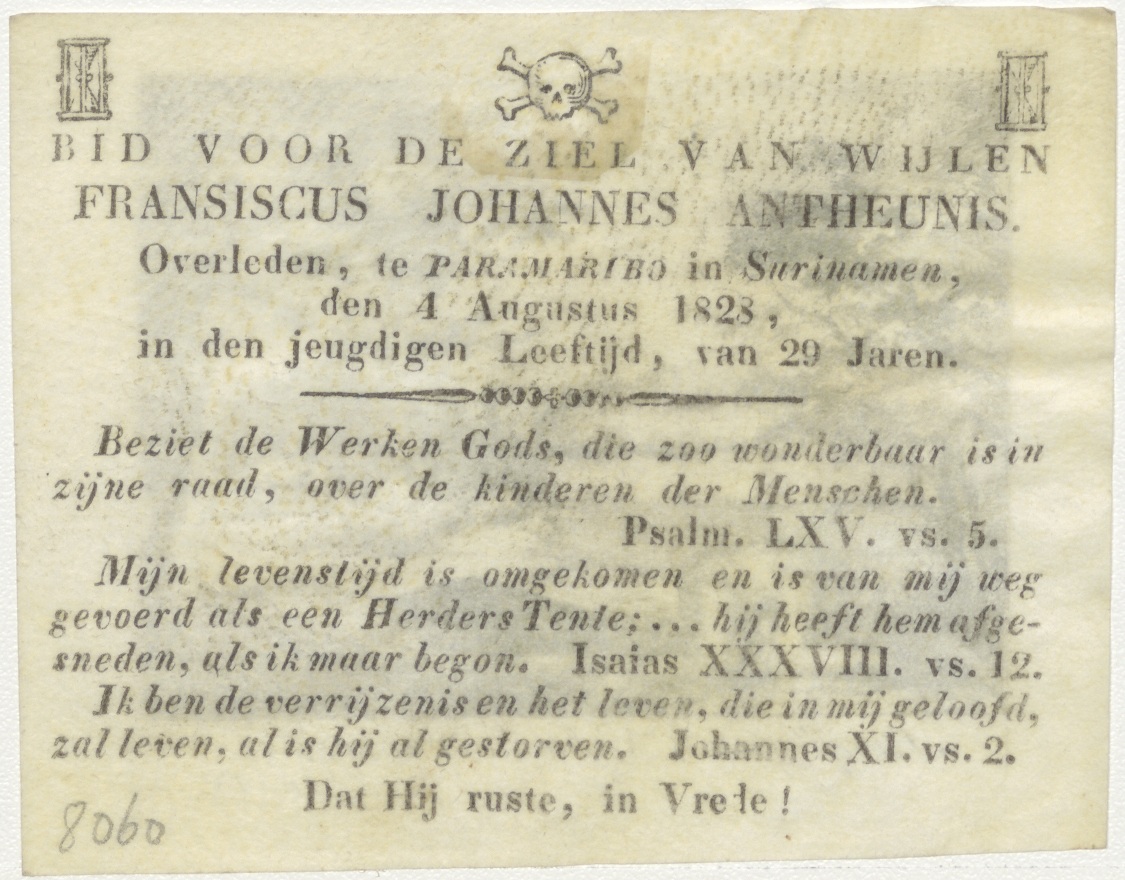 BID VOOR DE ZIEL VAN WIJLEN
FRANSISCUS JOHANNES ANTHEUNIS.
Overleden, te PARAMARIBO in Surinamen,
den 4 Augustus 1828,
in den jeugdigen Leeftijd, van 29 Jaren.
Beziet de Werken Gods, die zoo wonderbaar is in
zijne raad, over de kinderen der Menschen.
Psalm. LXV. vs. 5.
Mijn levenstijd is omgekomen en is van mij weg
gevoerd als een Herders Tente; ... hij heeft hem afge-
sneden, als ik maar begon. Isaias XXXVIII. vs. 12.
Ik ben de verrijzenis en het leven, die in mij geloofd,
zal leven, al is hij al gestorven. Johannes XI. vs. 2.
Dat Hij ruste, in Vrede!
8060